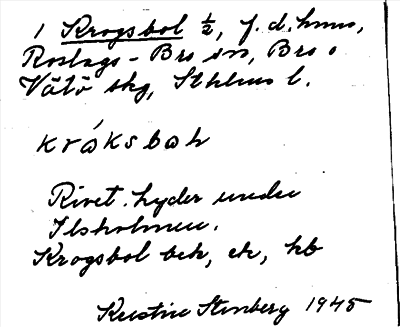 1 Krogsbol ½, f. d. hmn,
Roslags-Bro sn, Bro o
Vätö skg, Sthlms l.
kráksboh
Rivet. lyder under
Ilsholmen.
Krogsbol bek, ek, hb
Kerstin Stenberg 1945